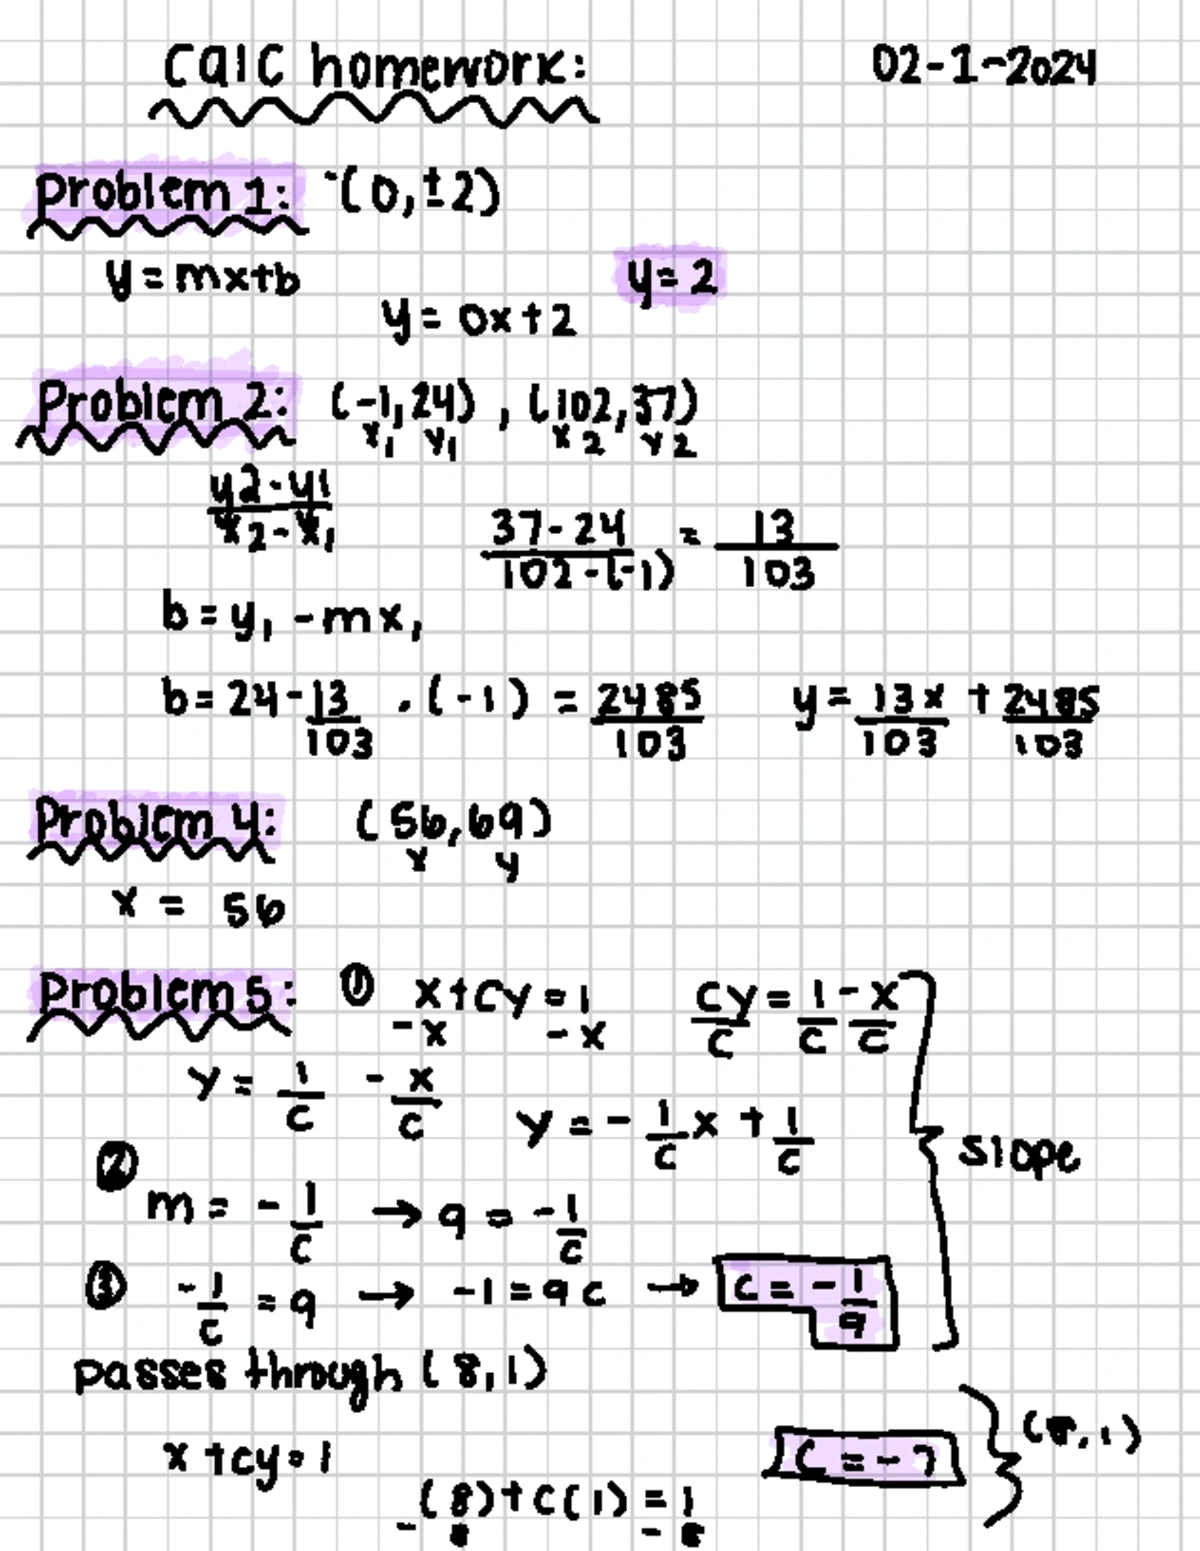 Calc homework: 02-1-2024
Problem 1: -(0,±2)
y = mx+b
y = 2
y = 0x+2
Problem 2: (-1,24), (102,37)
x₁ y₁ x2 y2
y2-y1 / x2-x₁
37-24 / 102-(-1) = 13/103
b = y₁ - mx₁
b = 24 - 13/103 . (-1) = 2485/103 y = 13x/103 + 2485/103
Problem 4: (56,69)
x y
x = 56
Problem 5: ① x+cy=1 cy/c = 1/c - x/c
-x -x
y = 1/c - x/c
y = -1/c x + 1/c
slope
② m = -1/c → 9 = -1/c
③ -1/c = 9 → -1 = 9c → c = -1/9
passes through (8,1)
(8,1)
x+cy=1
c = -7
(8)+c(1) = 1
-8 -8